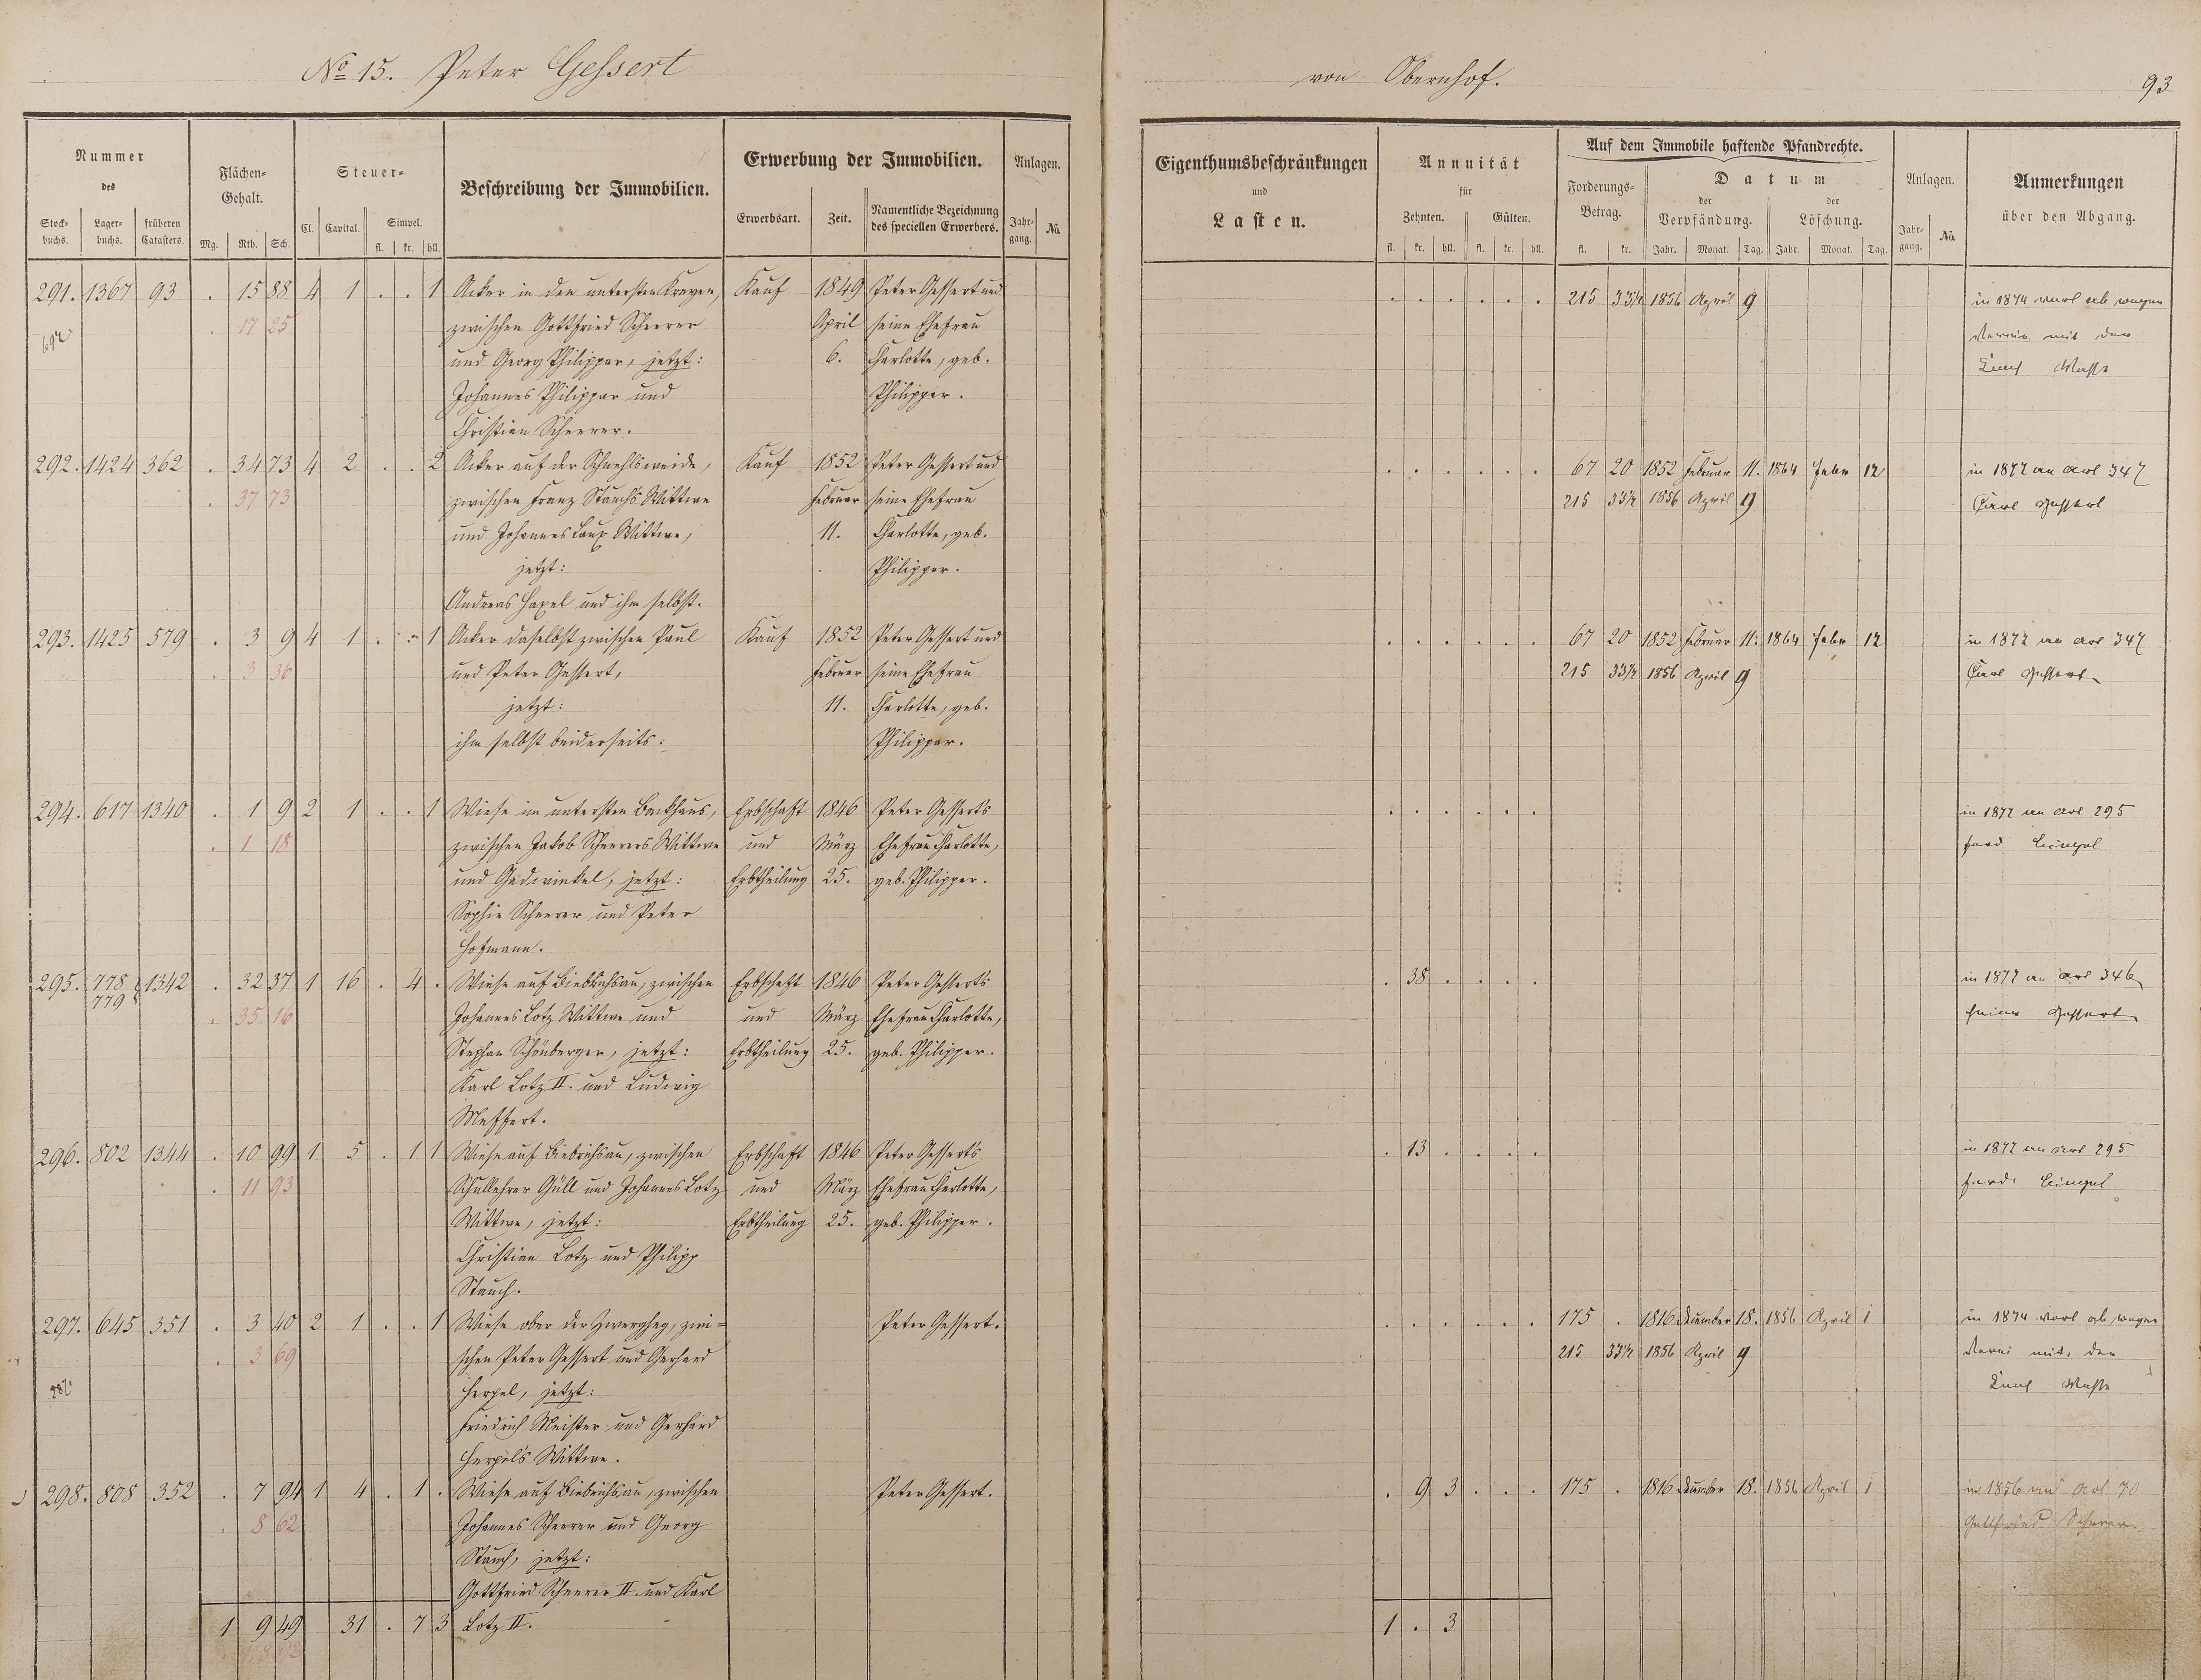 No 15. Peter Gessert
von Obernhof.
93
Nummer des
Stockbuchs. Lagerbuchs. früheren Catasters.
Flächen-Gehalt.
Mg. Rth. Sch.
Steuer-
Cl. Capital. Simpel.
fl. kr. hll.
Beschreibung der Immobilien.
Erwerbung der Immobilien.
Erwerbsart. Zeit. Namentliche Bezeichnung des speciellen Erwerbers.
Anlagen.
Jahrgang. No.
Eigenthumsbeschränkungen und Lasten.
Annuität für
Zehnten. Gülten.
fl. kr. hll. fl. kr. hll.
Auf dem Immobile haftende Pfandrechte.
Forderungs-Betrag.
fl. kr.
Datum
der Verpfändung. der Löschung.
Jahr. Monat. Tag. Jahr. Monat. Tag.
Anlagen.
Jahrgang. No.
Anmerkungen über den Abgang.
291. 1367 93 . 15 88 4 1 . . 1 Acker in den untersten Kreyen, Kauf 1849 Peter Gessert und . . . . . . 215 33½ 1856 April 9
17 25 zwischen Gottfried Scheerer April seine Ehefrau
und Georg Philippar, jetzt: 6. Charlotte, geb.
Johannes Philippar und Philippar.
Christian Scheerer.
292. 1424 362 . 34 73 4 2 . . 2 Acker auf der Kauf 1852 Peter Gessert und . . . . . . 67 20 1852 Februar 11. 1864 Febr 12 in 1877 an Art 347
. 37 73 zwischen Franz Stauch's Wittwe Februar seine Ehefrau 215 33½ 1856 April 9 Carl Gessert
und Johannes Laux Wittwe, 11. Charlotte, geb.
jetzt: Philippar.
Andreas Haxel und ihm selbst.
293. 1425 579 . 3 9 4 1 . . 1 Acker daselbst zwischen Paul Kauf 1852 Peter Gessert und . . . . . . 67 20 1852 Februar 11. 1864 Febr 12 in 1877 an Art 347
. 3 36 und Peter Gessert, Februar seine Ehefrau 215 33½ 1856 April 9 Carl Gessert
jetzt: 11. Charlotte, geb.
ihm selbst beiderseits. Philippar.
294. 617 1340 . 1 9 2 1 . . 1 Wiese im untersten Backhaus, Erbschaft 1846 Peter Gessert's . . . . . . in 1877 an Art 295
. 1 18 zwischen Jakob Scheerers Wittwe und März Ehefrau Charlotte, Ferd
und jetzt: Erbtheilung 25. geb. Philippar.
Sophie Scheerer und Peter
Hofmann.
295. 778 779 1342 . 32 37 1 16 . 4 . Wiese auf Biebrichsau, zwischen Erbschaft 1846 Peter Gessert's . 38 . . . . in 1877 an Art 346
. 35 16 Johannes Lotz Wittwe und und März Ehefrau Charlotte, Gessert
Stephan Schönberger, jetzt: Erbtheilung 25. geb. Philippar.
Karl Lotz II. und Ludwig
Meffert.
296. 802 1344 . 10 99 1 5 . 1 1 Wiese auf Biebrichsau, zwischen Erbschaft 1846 Peter Gessert's . 13 . . . . in 1877 an Art 295
. 11 93 Schullehrer Güll und Johannes Lotz und März Ehefrau Charlotte, Ferd
Wittwe, jetzt: Erbtheilung 25. geb. Philippar.
Christian Lotz und Philipp
Stauch.
297. 645 351 . 3 40 2 1 . . 1 Wiese ober der zwi- Peter Gessert. . . . . . . 175 . 1816 Dezember 18. 1856 April 1
. 3 69 schen Peter Gessert und Gerhard 215 33½ 1856 April 9
Herpel, jetzt:
Friedrich Meister und Gerhard
Herpel's Wittwe.
298. 808 352 . 7 94 1 4 . 1 . Wiese auf Biebrichsau, zwischen Peter Gessert. . 9 3 . . . 175 . 1816 Dezember 18. 1856 April 1 in 1856 Art 70
. 8 62 Johannes Scheerer und Georg Gottfried Scheerer
Stauch, jetzt:
Gottfried Scheerer II. und Karl
1 9 49 31 . 7 3 Lotz II. 1 . 3